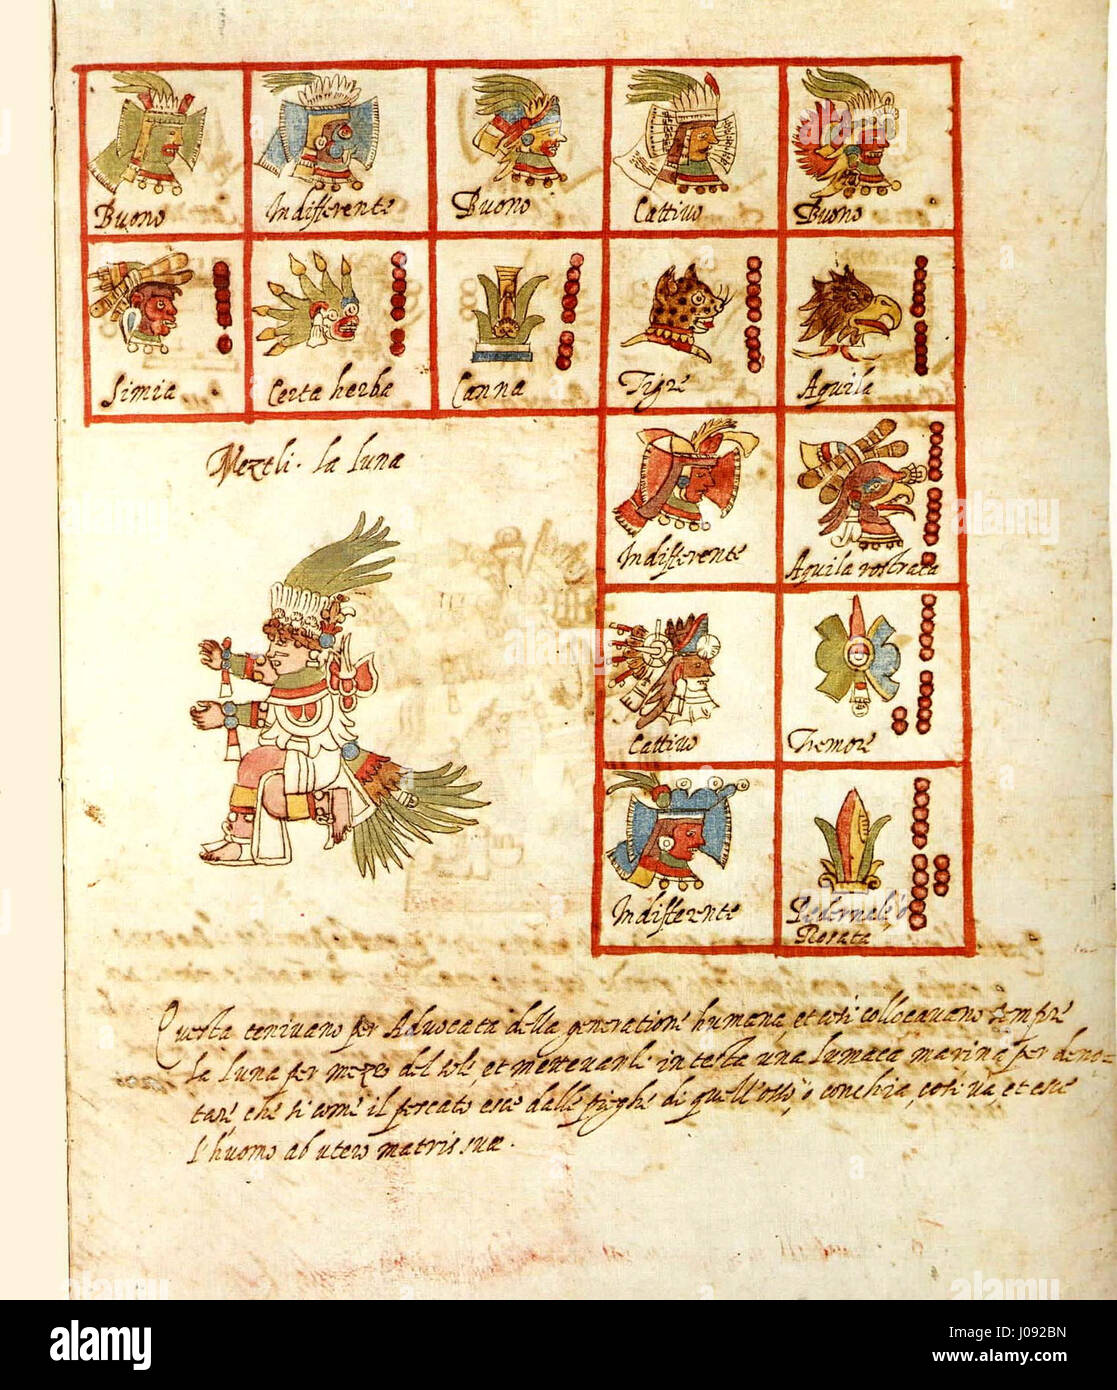 Buono Indifferente Buono Cattivo Buono
Simia Certa herba Canna Tigre Aquila
Meztli. la luna
Indifferente Aquila rostrata
Cattivo Tremore
Indifferente Pedernale ò
Rosata
Questa tenivano per Advocata della generatione humana, et cosi collocavano sempre
la luna per mezo del sole, et mettevanli in testa una lumaca marina per deno=
tare, che si come il pescato esce dalle pieghe di quell'osso, o conchia, cosi và, et esce
l'huomo ab utero matris suae.
alamy
Image ID: J092BN
www.alamy.com